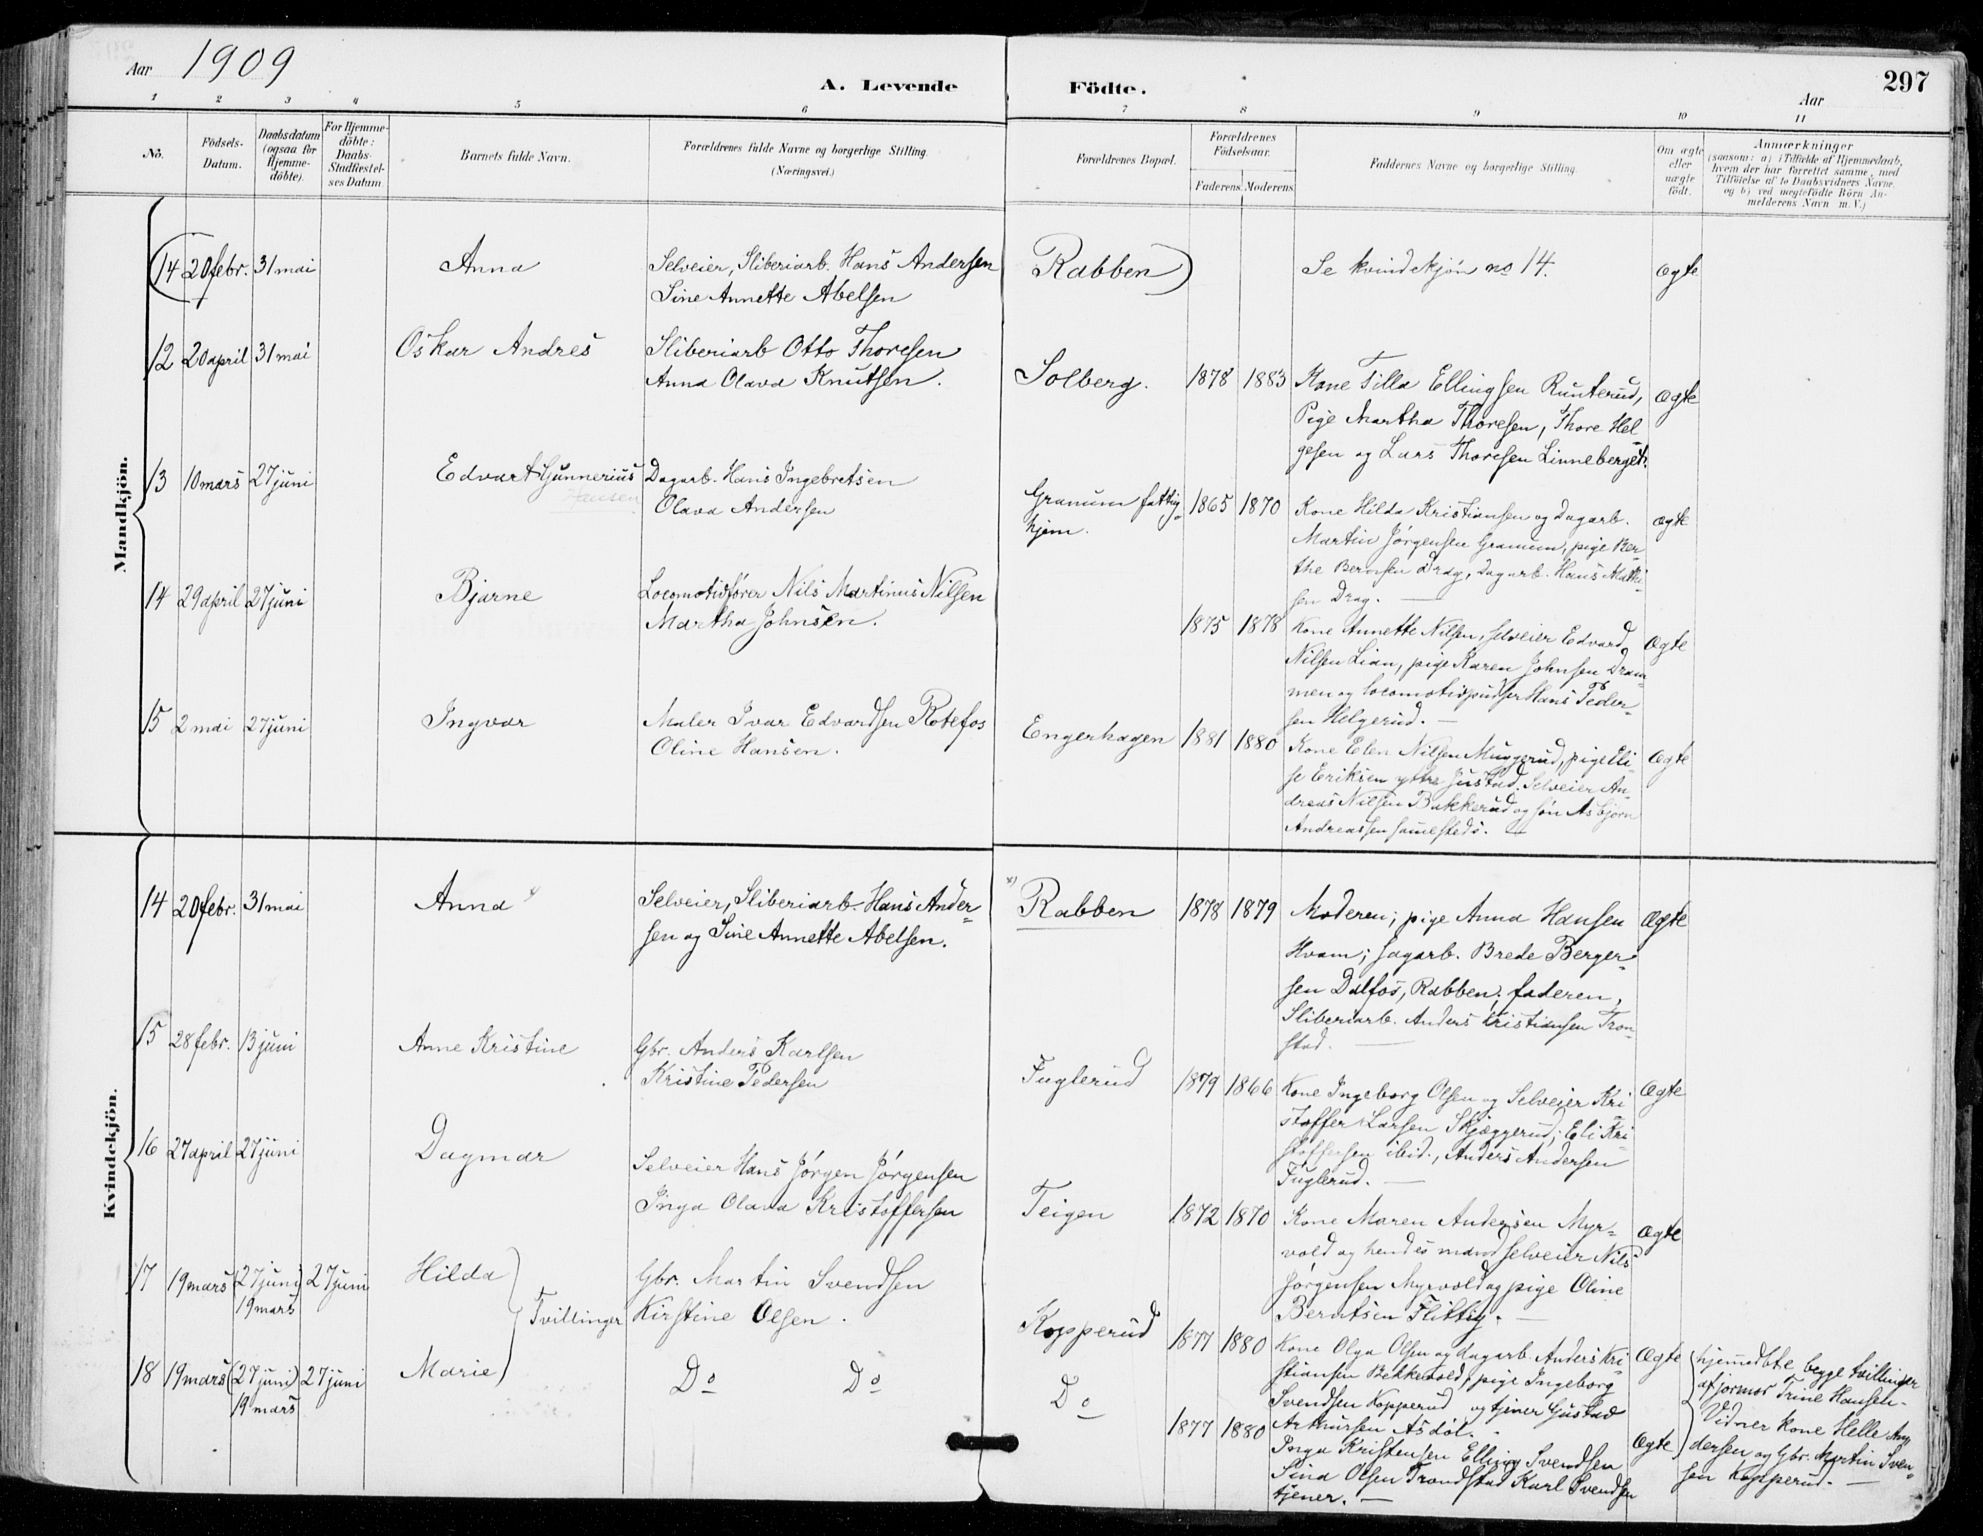 Aar 1909
A. Levende Födte.
Aar
297
1 2 3 4 5 6 7 8 9 10 11
No.
Födsels-
Datum.
Daabsdatum
(ogsaa for
Hjemme-
döbte).
For Hjemme-
döbte:
Daabs-
Stadfæstel-
ses Datum
Barnets fulde Navn.
Forældrenes fulde Navne og borgerlige Stilling
(Næringsvei.)
Forældrenes Bopæl.
Forældrenes
Födselsaar.
Faderens. Moderens.
Faddernes Navne og borgerlige Stilling.
Om ægte
eller
uægte
födt.
Anmærkninger
(saasom: a) i Tilfælde af Hjemmedaab,
hvem der har forrettet samme, med
Tilföielse af to Daabsvidners Navne.
og b) ved uegtefödte Börn An-
melderens Navn m. V.)
Mandkjön.
(14 20 febr. 31 mai Anna Selveier, Sliberiarb. Hans Andersen Rabben) Se kvindekjön no 14. Ægte
Sine Annette Abelsen
12 20 april 31 mai Oskar Andres Sliberiarb Otto Thoresen
Anna Olava Knutsen.
Solberg. 1878 1883 Kone Tilla Ellingsen Runterud, Ægte
Pige Martha Thoresen, Thore Hel
gesen og Lars Thoresen Linneberget.
13 10 mars 27 juni Edvart Gunnerius Dagarb. Hans Ingebretsen
Hansen
Olava Andersen
Granum fattig-
hjem.
1865 1870 Kone Hilda Kristiansen og Dagarb. Ægte
Martin Jørgensen Granum, pige Ber-
the Berntsen Drag, Dagarb. Hans Mathi-
sen Drag. —
14 29 april 27 juni Bjarne Locomotivfører Nils Martinus Nilsen
Martha Johnsen.
1875 1878 Kone Annette Nilsen, selveier Edvard Ægte
Nilsen Lian, pige Karen Johnsen Dram-
men og locomotivpudser Hans Peder-
sen Helgerud. —
15 2 mai 27 juni Ingvar Maler Ivar Edvardsen Rotefos
Oline Hansen.
Engerhagen 1881 1880 Kone Elen Nilsen Muggerud, pige Eli- Ægte
se Eriksen ytre Justad. Selveier An-
dreas Nilsen Bakkerud og søn Asbjørn
Andreassen samesteds. —
Kvindekjön.
14 20 febr. 31 mai Anna x Selveier, Sliberiarb. Hans Ander-
sen og Sine Annette Abelsen.
x) Rabben 1878 1879 Moderen; pige Anna Hansen Ægte
Hvam; sagarb. Brede Berger-
sen Dalfos, Rabben; faderen,
Sliberiarb. Anders Kristiansen Tron
stad. —
15 28 febr. 13 juni Anne Kristine Gbr. Anders Karlsen
Kristine Pedersen
Fuglerud 1879 1866 Kone Ingeborg Olsen og Selveier Kri Ægte
stoffer Larsen Skjæggerud; Eli Kri-
stoffersen ibid., Anders Andersen
Fuglerud. —
16 27 april 27 juni Dagmar Selveier Hans Jørgen Jørgensen
Inga Olava Kristoffersen
Teigen 1872 1870 Kone Maren Andersen Myr- Ægte
vold og hendes mand selveier Nils
Jørgensen Myrvold og pige Oline
Berntsen Flittig. —
17 19 mars (27 juni) 27 juni Hilda Gbr. Martin Svendsen
19 mars
Tvillinger Kirstine Olsen.
Kopperud 1877 1880 Kone Olga Olsen og dagarb. Anders Kri- Ægte
stiansen Bekkevold, pige Ingeborg
Svendsen Kopperud og tjener Gustav
Arthursen Asdöl.
hjemmedöbte begge tvillinger
af jormor Trine Hansen.
Vidner kone Helle An-
dersen og Gbr. Martin Sven-
sen Kopperud. —
18 19 mars (27 juni) 27 juni Marie Do Do
19 mars
Do 1877 1880 Inga Kristensen Elling Svendsen Ægte
Sina Olsen Trondstad Karl Svendsen
tjener. —